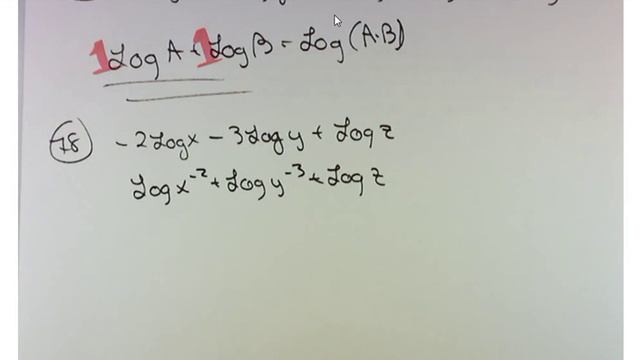 1 Log A + 1 Log B = Log (A·B)
78 - 2 Log x - 3 Log y + Log z
Log x⁻² + Log y⁻³ + Log z